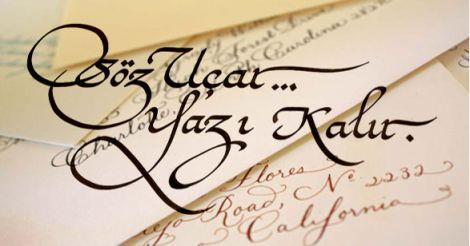 Söz Uçar...
Yazı Kalır.
Forest Drive
Carolina 2821
Charlotte,
Flores
Road, Nº 2232
California